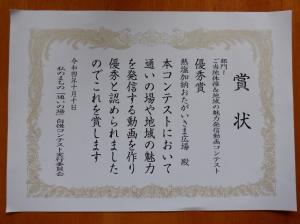 賞状
部門1
ご当地体操&地域の魅力発信動画コンテスト
優秀賞
熱塩加納おたがいさま広場 殿
本コンテストにおいて
通いの場や地域の魅力
を発信する動画を作り
優秀と認められました
のでこれを賞します
令和四年十月十日
私のまちの「通いの場」自慢コンテスト実行委員会